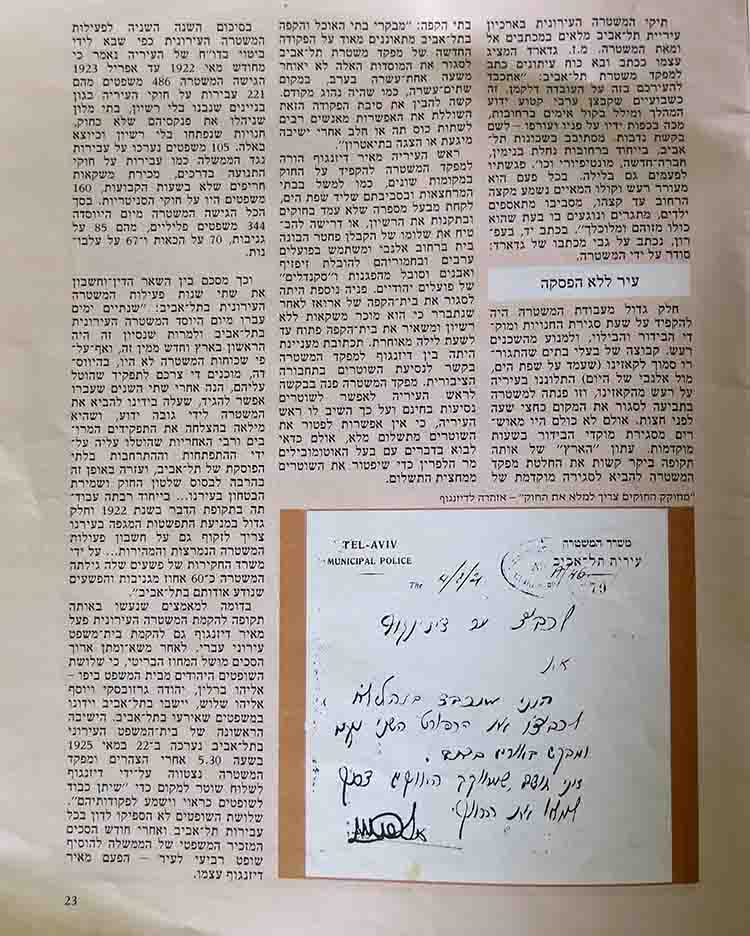 תיקי המשטרה העירונית בארכיון
עיריית תל־אביב מלאים במכתבים אל
ומאת המשטרה. מ.ז. גדארד המציג
עצמו ככתב ובא כוח עיתונים כתב
למפקד משטרת תל־אביב: "אתכבד
להעירכם בזה על העובדה דלקמן. זה
כשבועיים שקבצן ערבי קטוע ידוע
המהלך ומילל בקול אימים ברחובות,
מכה בכפות ידיו על פניו ועורפו – לשם
בקשת נדבות. מסתובב בשכונות תל־
אביב, בייחוד ברחובות נחלת בנימין,
חברה־חדשה, מונטיפיורי וכו'. פגשתיו
לפעמים גם בלילה. בכל פעם הוא
מעורר רעש וקולו המאיים נשמע מקצה
הרחוב עד קצהו, מסביבו מתאספים
ילדים, מתגרים ונוגעים בו בעת שהוא
כולו מזוהם ומלוכלך". בכתב יד, בעפ־
רון, נכתב על גבי מכתבו של גדארד:
סודר על ידי המשטרה.
עיר ללא הפסקה
חלק גדול מעבודת המשטרה היה
להקפיד על שעת סגירת החנויות ומוק־
די הבידור והבילוי, ולמנוע מהשכנים
רעש. קבוצה של בעלי בתים שהתגור־
רו סמוך לקאזינו (שעמד על שפת הים,
מול אלנבי של היום) התלוננו בעיריה
על רעש מהקאזינו, וזו פנתה למשטרה
בתביעה לסגור את המקום כחצי שעה
לפני חצות. אולם לא כולם היו מאוש־
רים מסגירת מוקדי הבידור בשעות
מוקדמות. עתון "הארץ" של אותה
תקופה ביקר קשות את החלטת מפקד
המשטרה להביא לסגירה מוקדמת של
בתי הקפה: "מבקרי בתי האוכל והקפה
בתל־אביב מתאוננים מאוד על הפקודה
החדשה של מפקד משטרת תל־אביב
לסגור את המוסדות האלה לא יאוחר
משעה אחת־עשרה בערב, במקום
שתים־עשרה, כמו שהיה נהוג מקודם.
קשה להבין את סיבת הפקודה הזאת
השוללת את האפשרות מאנשים רבים
לשתות כוס תה או חלב אחרי ישיבה
מיגעת או הצגה בתיאטרון".
ראש העיריה מאיר דיזנגוף הורה
למפקד המשטרה להקפיד על החוק
במקומות שונים, כמו למשל בבתי
המרחצאות ובסביבתם שליד שפת הים,
לקחת מבעל מספרה שלא עמד בחוקים
ובתקנות את הרשיון, או דרישה להב־
טיח את שלומו של הקבלן פחטר הבונה
בית ברחוב אלנבי ומשתמש בפועלים
ערבים ובחמוריהם להובלת זיפזיף
ואבנים וסובל מהפגנות ו"סקנדלים"
של פועלים יהודיים. פניה נוספת היתה
לסגור את בית־הקפה של ארואז לאחר
שנתברר כי הוא מוכר משקאות ללא
רשיון ומשאיר את בית־הקפה פתוח עד
לשעת לילה מאוחרת. תכתובת מעניינת
היתה בין דיזנגוף למפקד המשטרה
בקשר לנסיעת השוטרים בתחבורה
הציבורית. מפקד המשטרה פנה בבקשה
לראש העיריה לאפשר לשוטרים
נסיעות בחינם ועל כך השיב לו ראש
העיריה, כי אין אפשרות לפטור את
השוטרים מתשלום מלא, אולם כדאי
לבוא בדברים עם בעל האוטומובילים
מר הלפרין כדי שיפטור את השוטרים
ממחצית התשלום.
"מחוקק החוקים צריך למלא את החוק" – אזהרה לדיזנגוף
TEL-AVIV
MUNICIPAL POLICE
The
משרד המשטרה
עירית תל־אביב
79
בסיכום השנה השניה לפעילות
המשטרה העירונית כפי שבא לידי
ביטוי בדו"ח של העיריה נאמר כי
מחודש מאי 1922 עד אפריל 1923
הגישה המשטרה 486 משפטים מהם
221 עבירות על חוקי העיריה כגון
בניינים שנבנו בלי רשיון, בתי מלון
שניהלו את פנקסיהם שלא כחוק,
חנויות שנפתחו בלי רשיון וכיוצא
באלה. 105 משפטים נערכו על עבירות
נגד הממשלה כמו עבירות על חוקי
התנועה בדרכים, מכירת משקאות
חריפים שלא בשעות הקבועות, 160
משפטים היו על חוקי הסניטריות. בסך
הכל הגישה המשטרה מיום היווסדה
344 משפטים פליליים, מהם 85 על
גניבות, 70 על הכאות ו־67 על עלבו־
נות.
וכך מסכם בין השאר הדין־וחשבון
את שתי שנות פעילות המשטרה
העירונית בתל־אביב: "שנתיים ימים
עברו מיום היווסד המשטרה העירונית
בתל־אביב ולמרות שנסיון זה היה
הראשון בארץ וחדש ממין זה, ואף־על־
פי שכוחות המשטרה לא היו, בהיווס־
דה, מוכנים די צרכם לתפקיד שהוטל
עליהם, הנה אחרי שתי השנים שעברו
אפשר להגיד, שעלה בידינו להביא את
המשטרה לידי גובה ידוע, ושהיא
מילאה בהצלחה את התפקידים המרו־
בים ורבי האחריות שהוטלו עליה על־
ידי ההתפתחות וההתרחבות בלתי
הפוסקת של תל־אביב, ועזרה באופן זה
בהרבה לבסוס שלטון החוק ושמירת
הבטחון בעירנו... בייחוד רבתה עבוד־
תה בתקופת הדבר בשנת 1922 וחלק
גדול במניעת התפשטות המגפה בעירנו
צריך לזקוף גם על חשבון פעולות
המשטרה הנמרצות והמהירות... על ידי
משרד החקירות של פשעים שלה גילתה
המשטרה כ־60 אחוז מגניבות והפשעים
שנודע אודותם בתל־אביב".
בדומה למאמצים שנעשו באותה
תקופה להקמת המשטרה העירונית פעל
מאיר דיזנגוף גם להקמת בית־משפט
עירוני עברי. לאחר משא־ומתן ארוך
הסכים מושל המחוז הבריטי, כי שלושת
השופטים היהודים מבית המשפט ביפו –
אליהו ברלין, יהודה גרזובסקי ויוסף
אליהו שלוש, יישבו בתל־אביב וידונו
במשפטים שאירעו בתל־אביב. הישיבה
הראשונה של בית־המשפט העירוני
בתל־אביב נערכה ב־22 במאי 1925
בשעה 5.30 אחרי הצהרים ומפקד
המשטרה נצטווה על־ידי דיזנגוף
לשלוח שוטר למקום כדי "שיתן כבוד
לשופטים כראוי וישמע לפקודותיהם".
שלושת השופטים לא הספיקו לדון בכל
עבירות תל־אביב ואחרי חודש הסכים
המזכיר המשפטי של הממשלה להוסיף
שופט רביעי לעיר – הפעם מאיר
דיזנגוף עצמו.
23